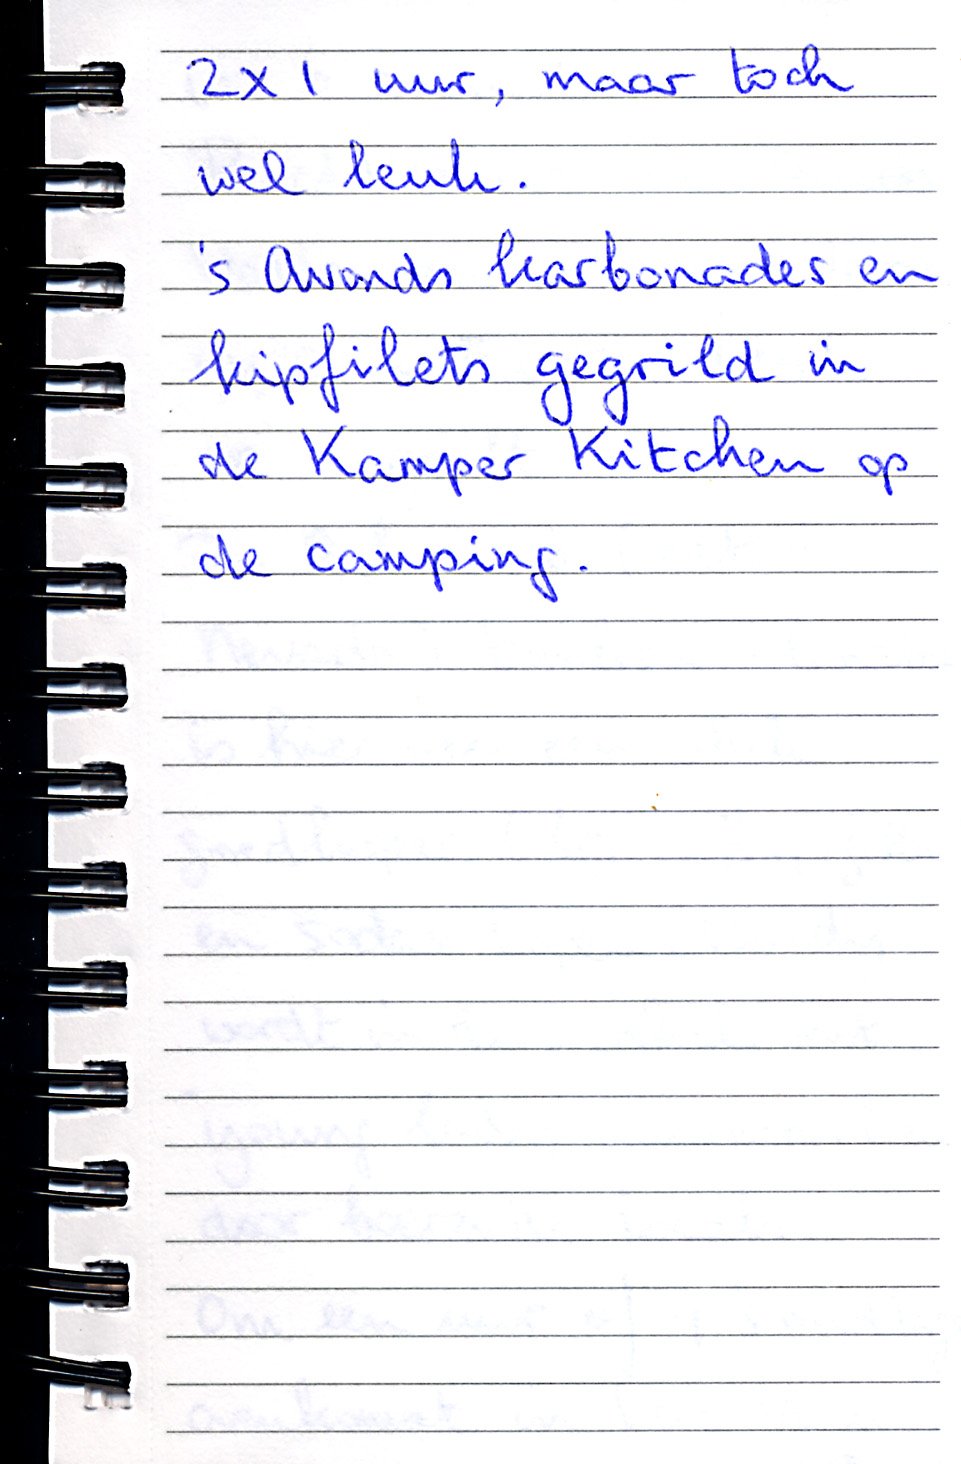 2x1 uur, maar toch
wel leuk.
's Avonds karbonades en
kipfilets gegrild in
de Kamper Kitchen op
de camping.